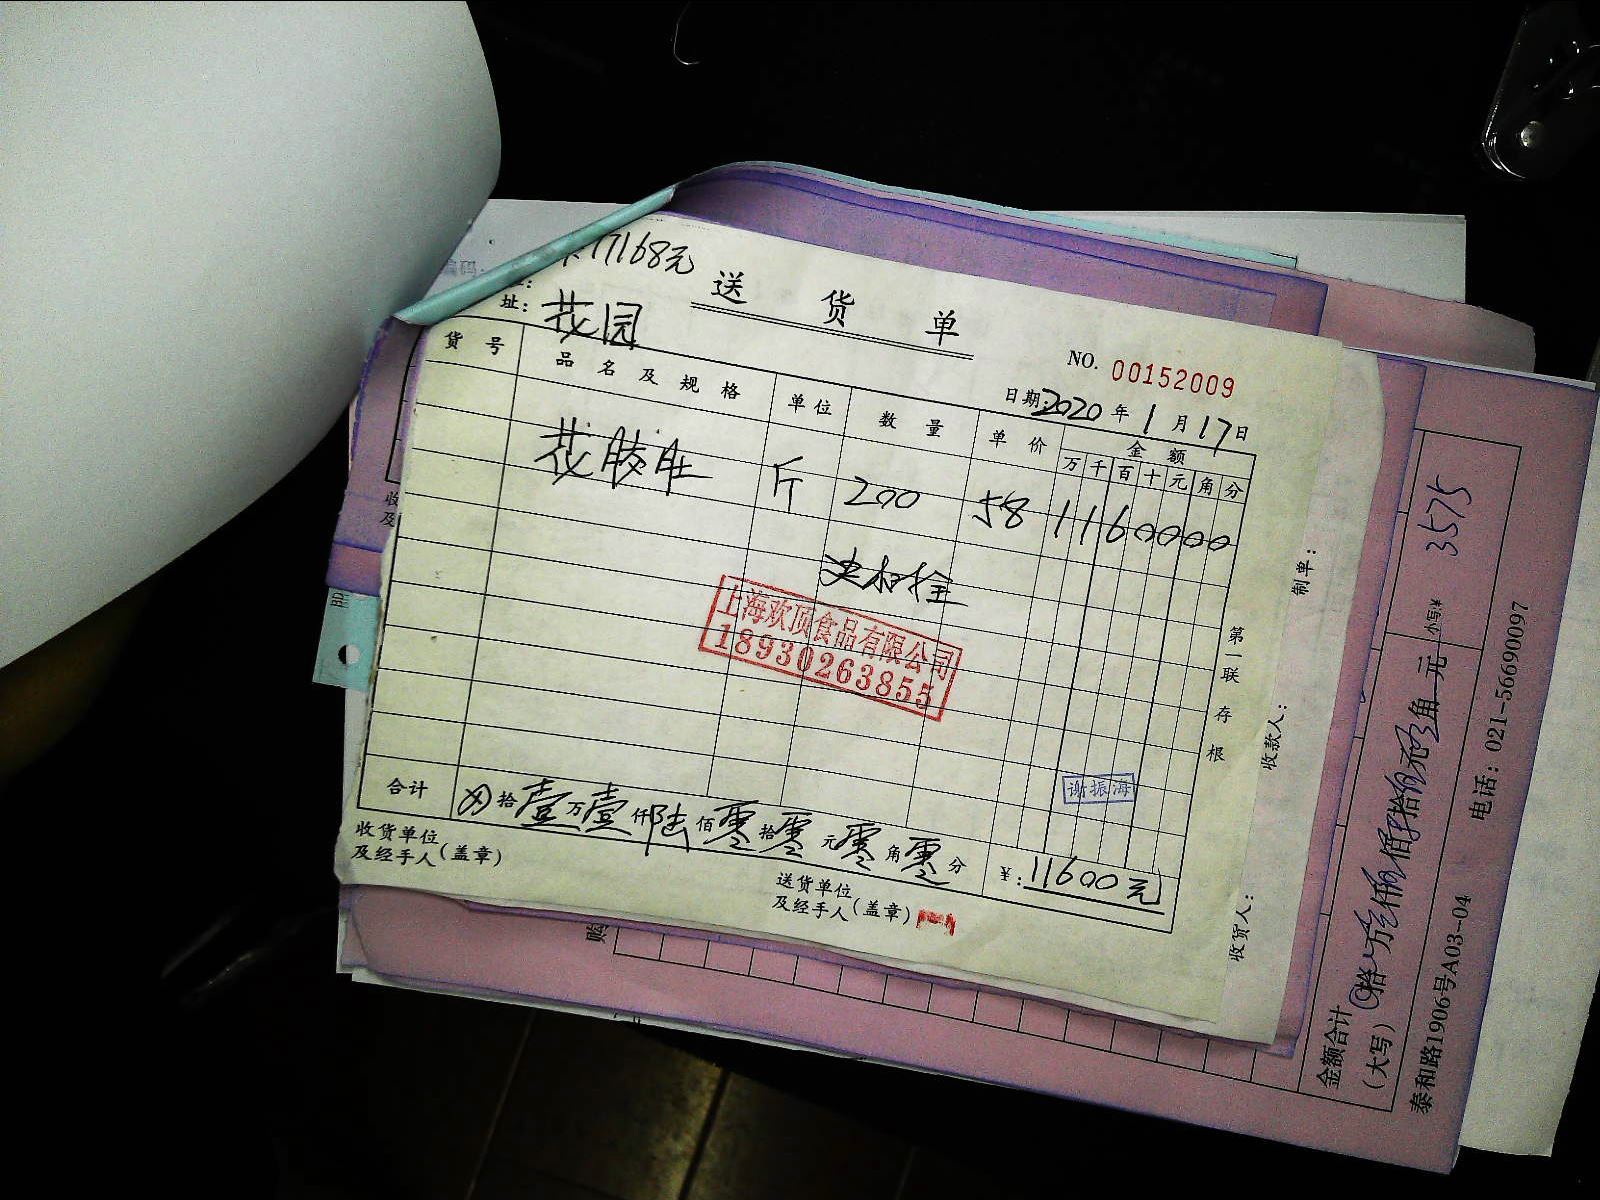 17168元
送货单
址: 花园
NO. 00152009
日期: 2020 年 1 月 17 日
货号 品名及规格 单位 数量 单价 金额
万 千 百 十 元 角 分
花胶肚 斤 200 58 1 1 6 0 0 0 0
上海欢顶食品有限公司
18930263855
谢振海
合计 拾壹万壹仟陆佰零拾零元零角零分 ¥: 11600元
收货单位
及经手人(盖章)
送货单位
及经手人(盖章)
第一联存根
制单:
收款人:
收货人:
收
及
购
编码:
金额合计
(大写)
小写¥ 3575
泰和路1906号A03-04 电话: 021-56690097